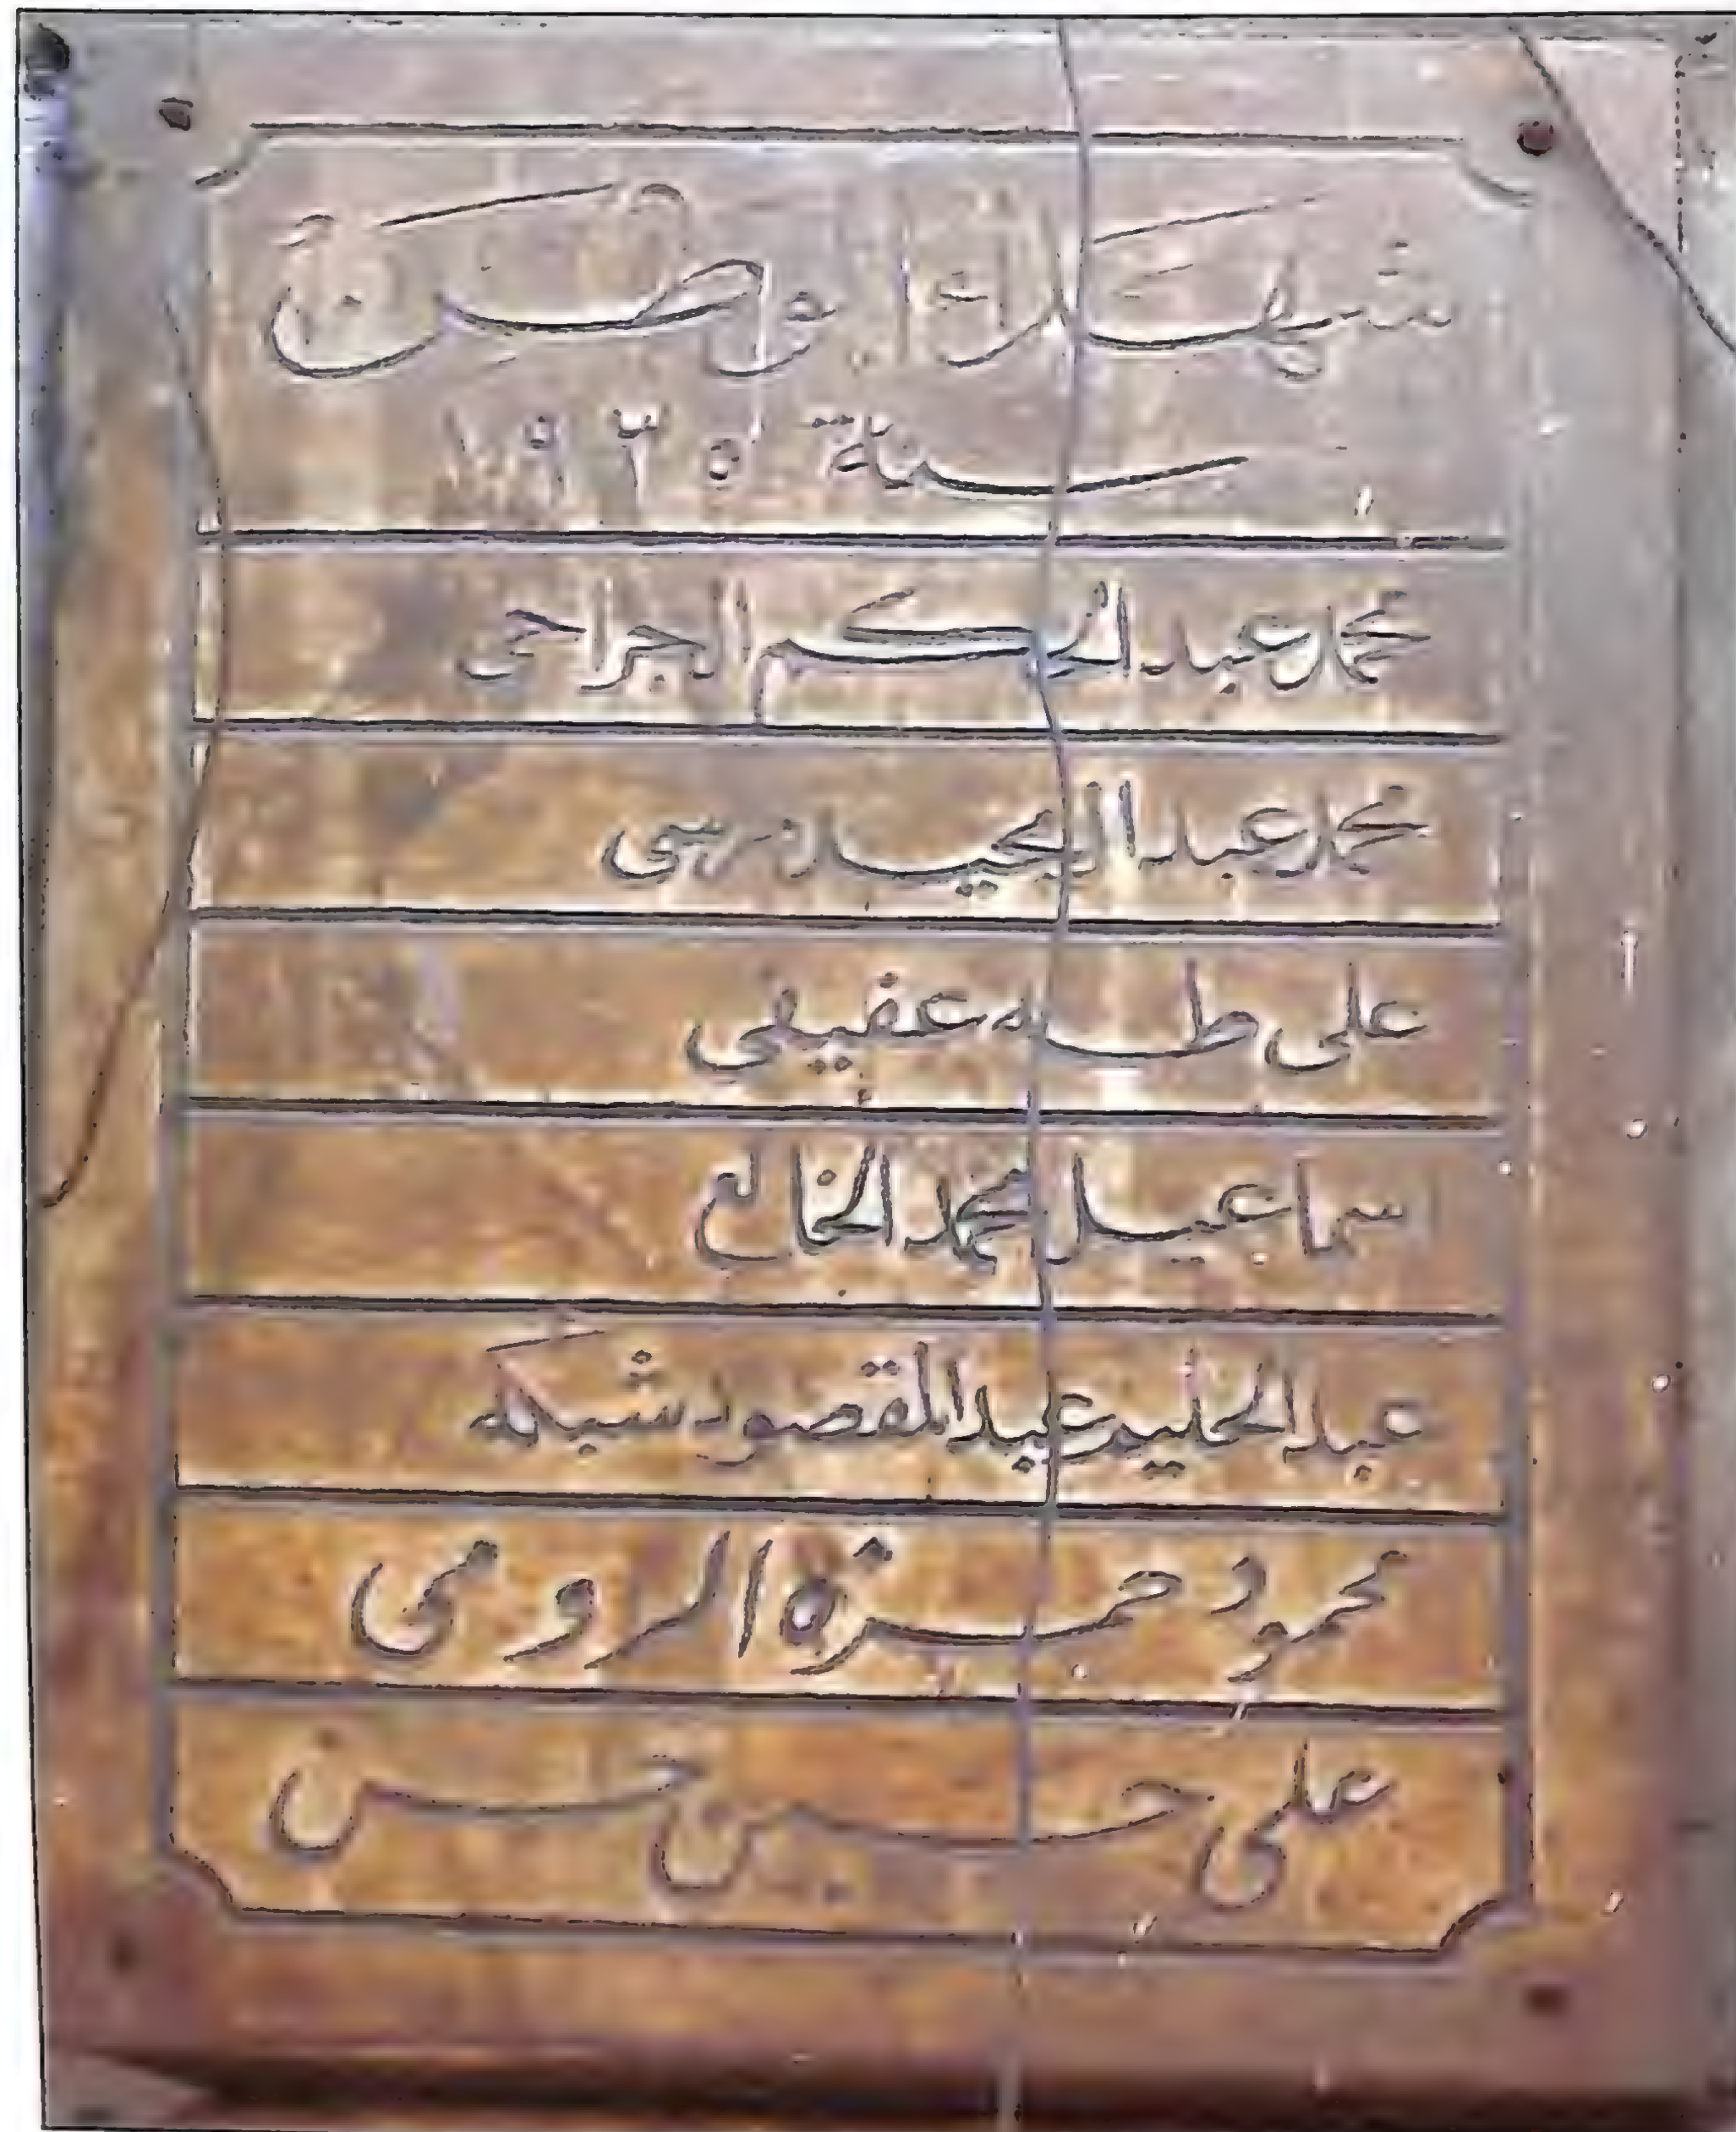 شهداء الوطن
سنة ١٩٣٥
محمد عبد الحكم الجراحى
محمد عبد المجيد مرسى
على طه عفيفى
اسماعيل محمد الخالع
عبد الحليم عبد المقصود شبكه
محمود حمزة الرومى
على حسين حسن